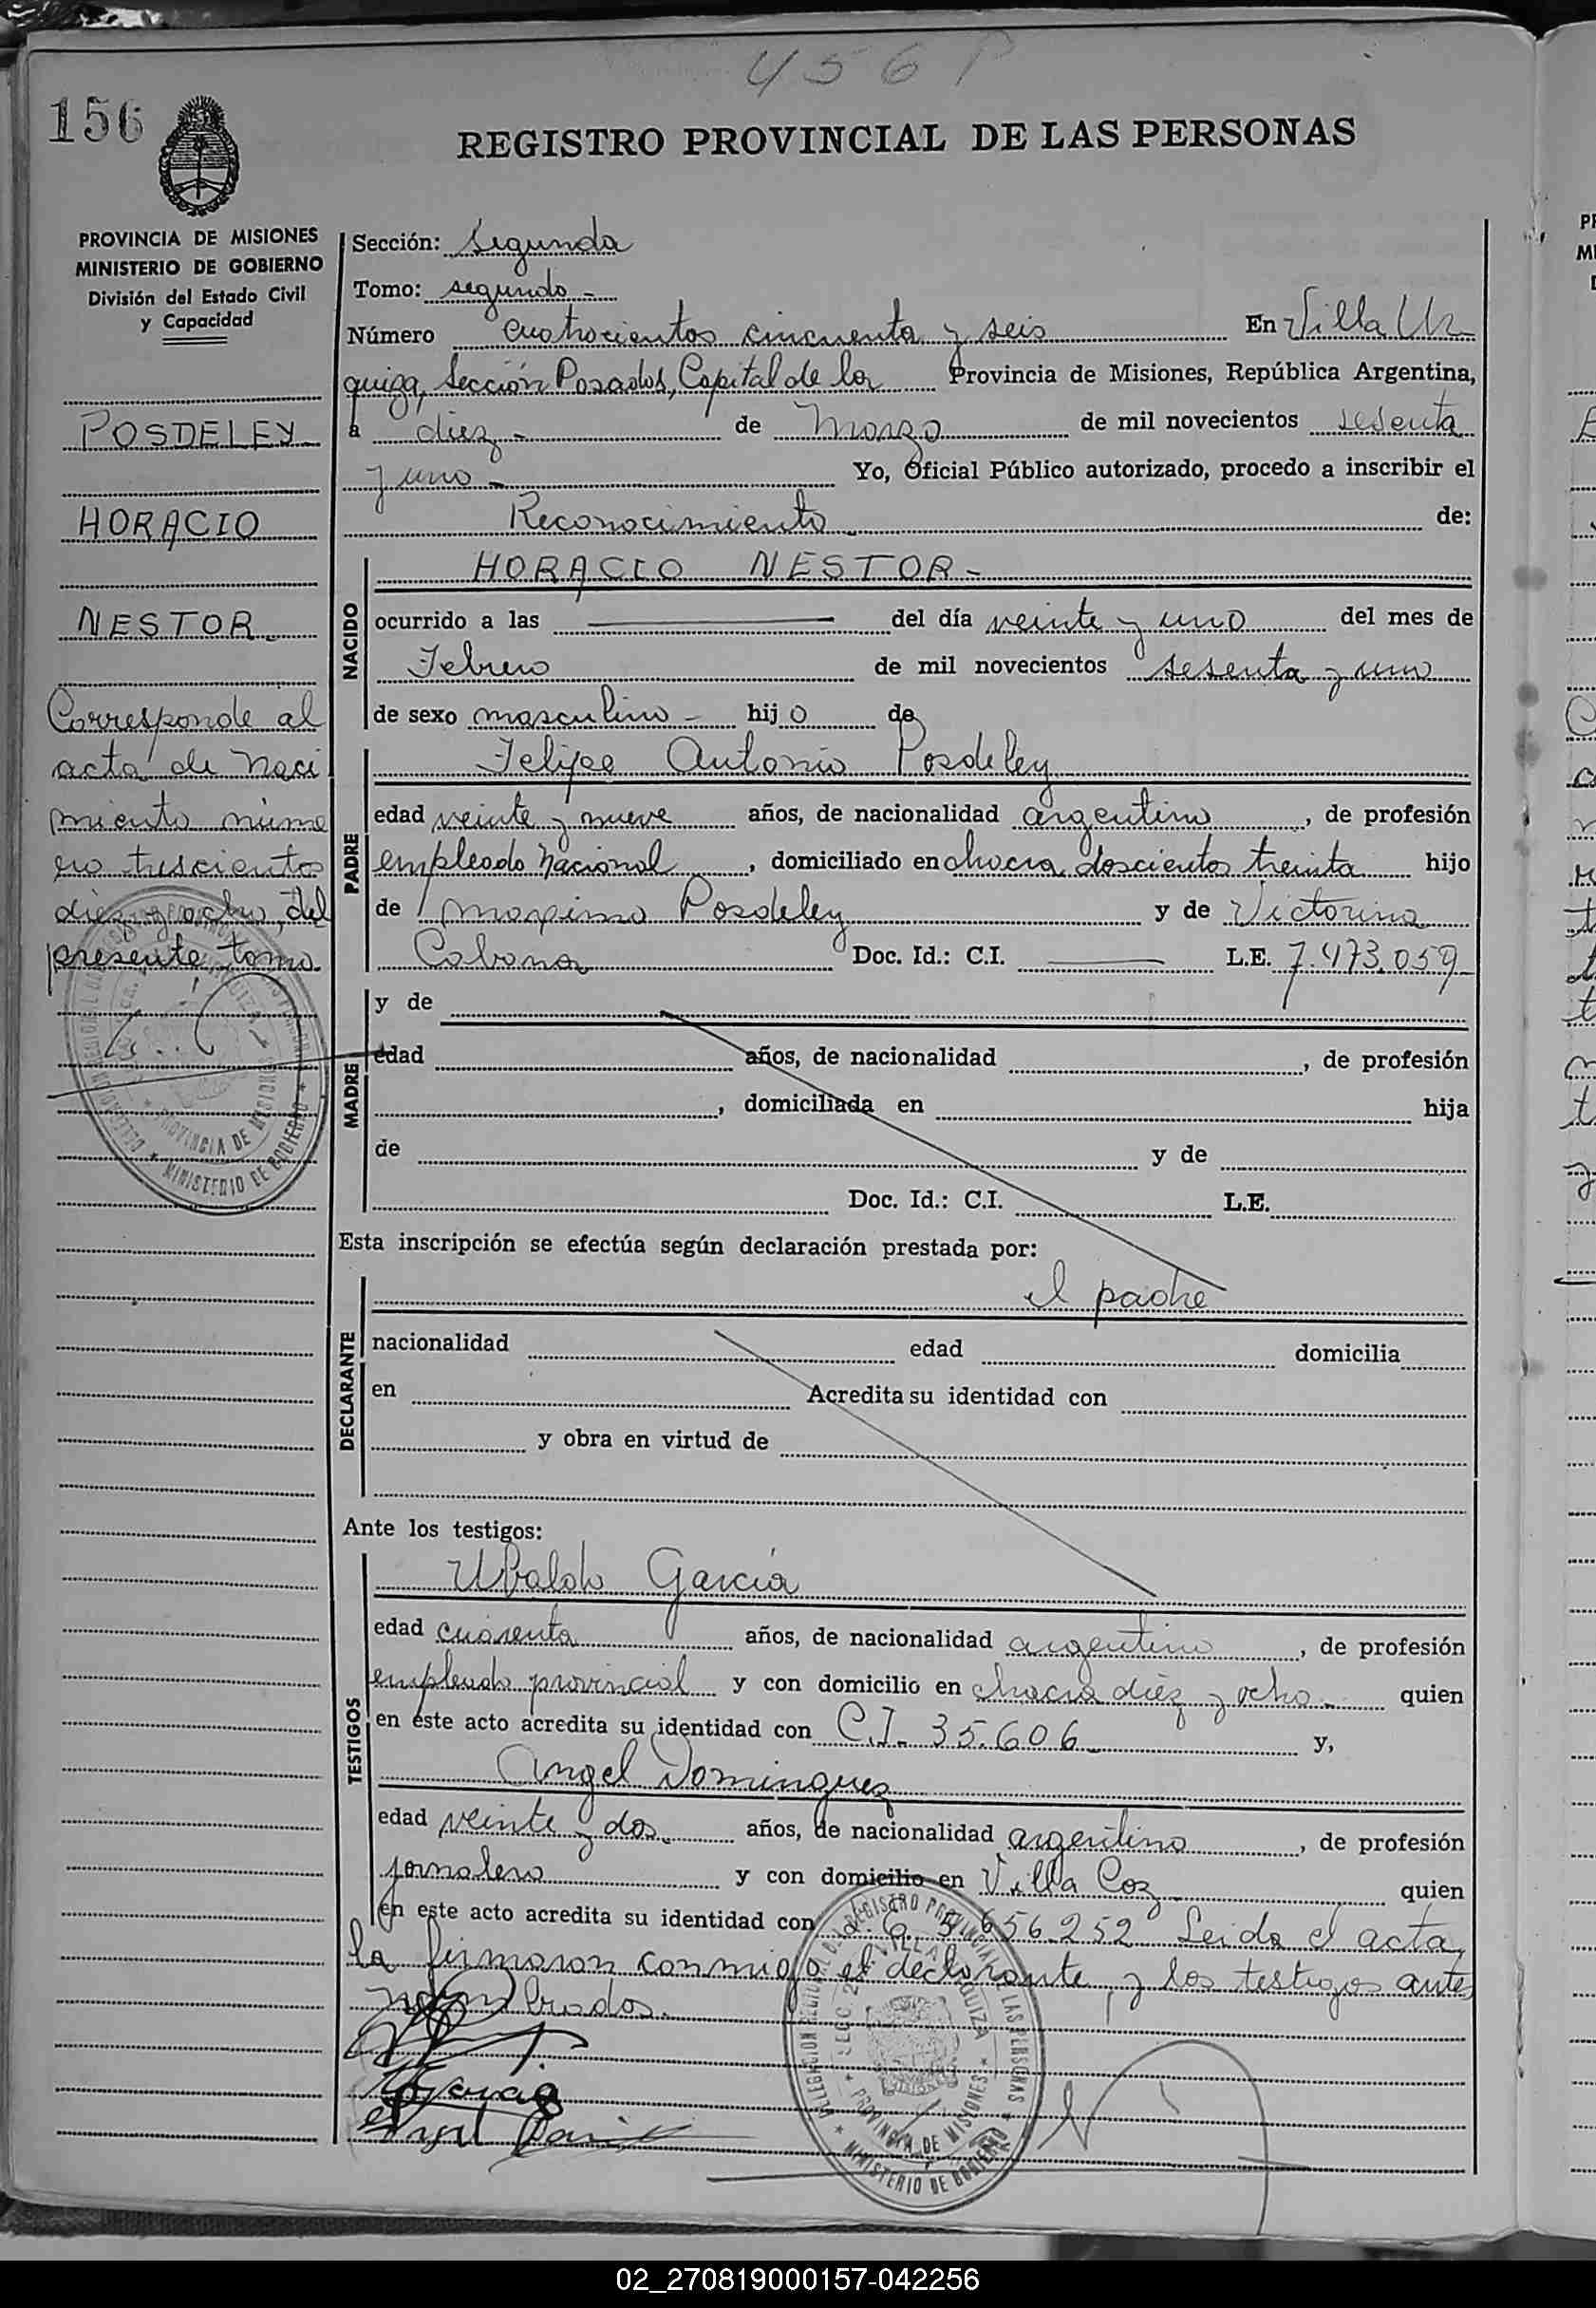 456 P
156
REGISTRO PROVINCIAL DE LAS PERSONAS
PROVINCIA DE MISIONES
MINISTERIO DE GOBIERNO
División del Estado Civil
y Capacidad
POSDELEY
HORACIO
NESTOR.
Corresponde al
acta de naci
miento núme
ro trescientos
diez y ocho, del
presente tomo.
Sección: Segunda
Tomo: segundo -
Número cuatrocientos cincuenta y seis En Villa Ur
quiza, Sección Posadas, Capital de la Provincia de Misiones, República Argentina,
a diez - de Marzo de mil novecientos sesenta
y uno - Yo, Oficial Público autorizado, procedo a inscribir el
Reconocimiento de:
NACIDO
HORACIO NESTOR -
ocurrido a las — del día veinte y uno del mes de
Febrero de mil novecientos sesenta y uno
de sexo masculino - hijo de
PADRE
Felipe Antonio Posdeley
edad veinte y nueve años, de nacionalidad argentino, de profesión
empleado nacional, domiciliado en chacra doscientos treinta hijo
de Maximo Posdeley y de Victorina
Cabona Doc. Id.: C.I. — L.E. 7.473.059
MADRE
y de
edad años, de nacionalidad , de profesión
, domiciliada en hija
de y de
Doc. Id.: C.I. L.E.
Esta inscripción se efectúa según declaración prestada por:
DECLARANTE
el padre
nacionalidad edad domicilia
en Acredita su identidad con
y obra en virtud de
Ante los testigos:
TESTIGOS
Ubaldo García
edad cuarenta años, de nacionalidad argentino, de profesión
empleado provincial y con domicilio en chacra diez y ocho - quien
en este acto acredita su identidad con C.I. 35.606 y,
Angel Dominguez
edad veinte y dos. años, de nacionalidad argentino, de profesión
jornalero y con domicilio en Villa Coz quien
en este acto acredita su identidad con 5.656.252 Leida el acta,
la firmaron conmigo el declarante, y los testigos ante
nombrados.
DELEGACION REGISTRO PROVINCIAL DE LAS PERSONAS
PROVINCIA DE MISIONES
MINISTERIO DE GOBIERNO
02_270819000157-042256